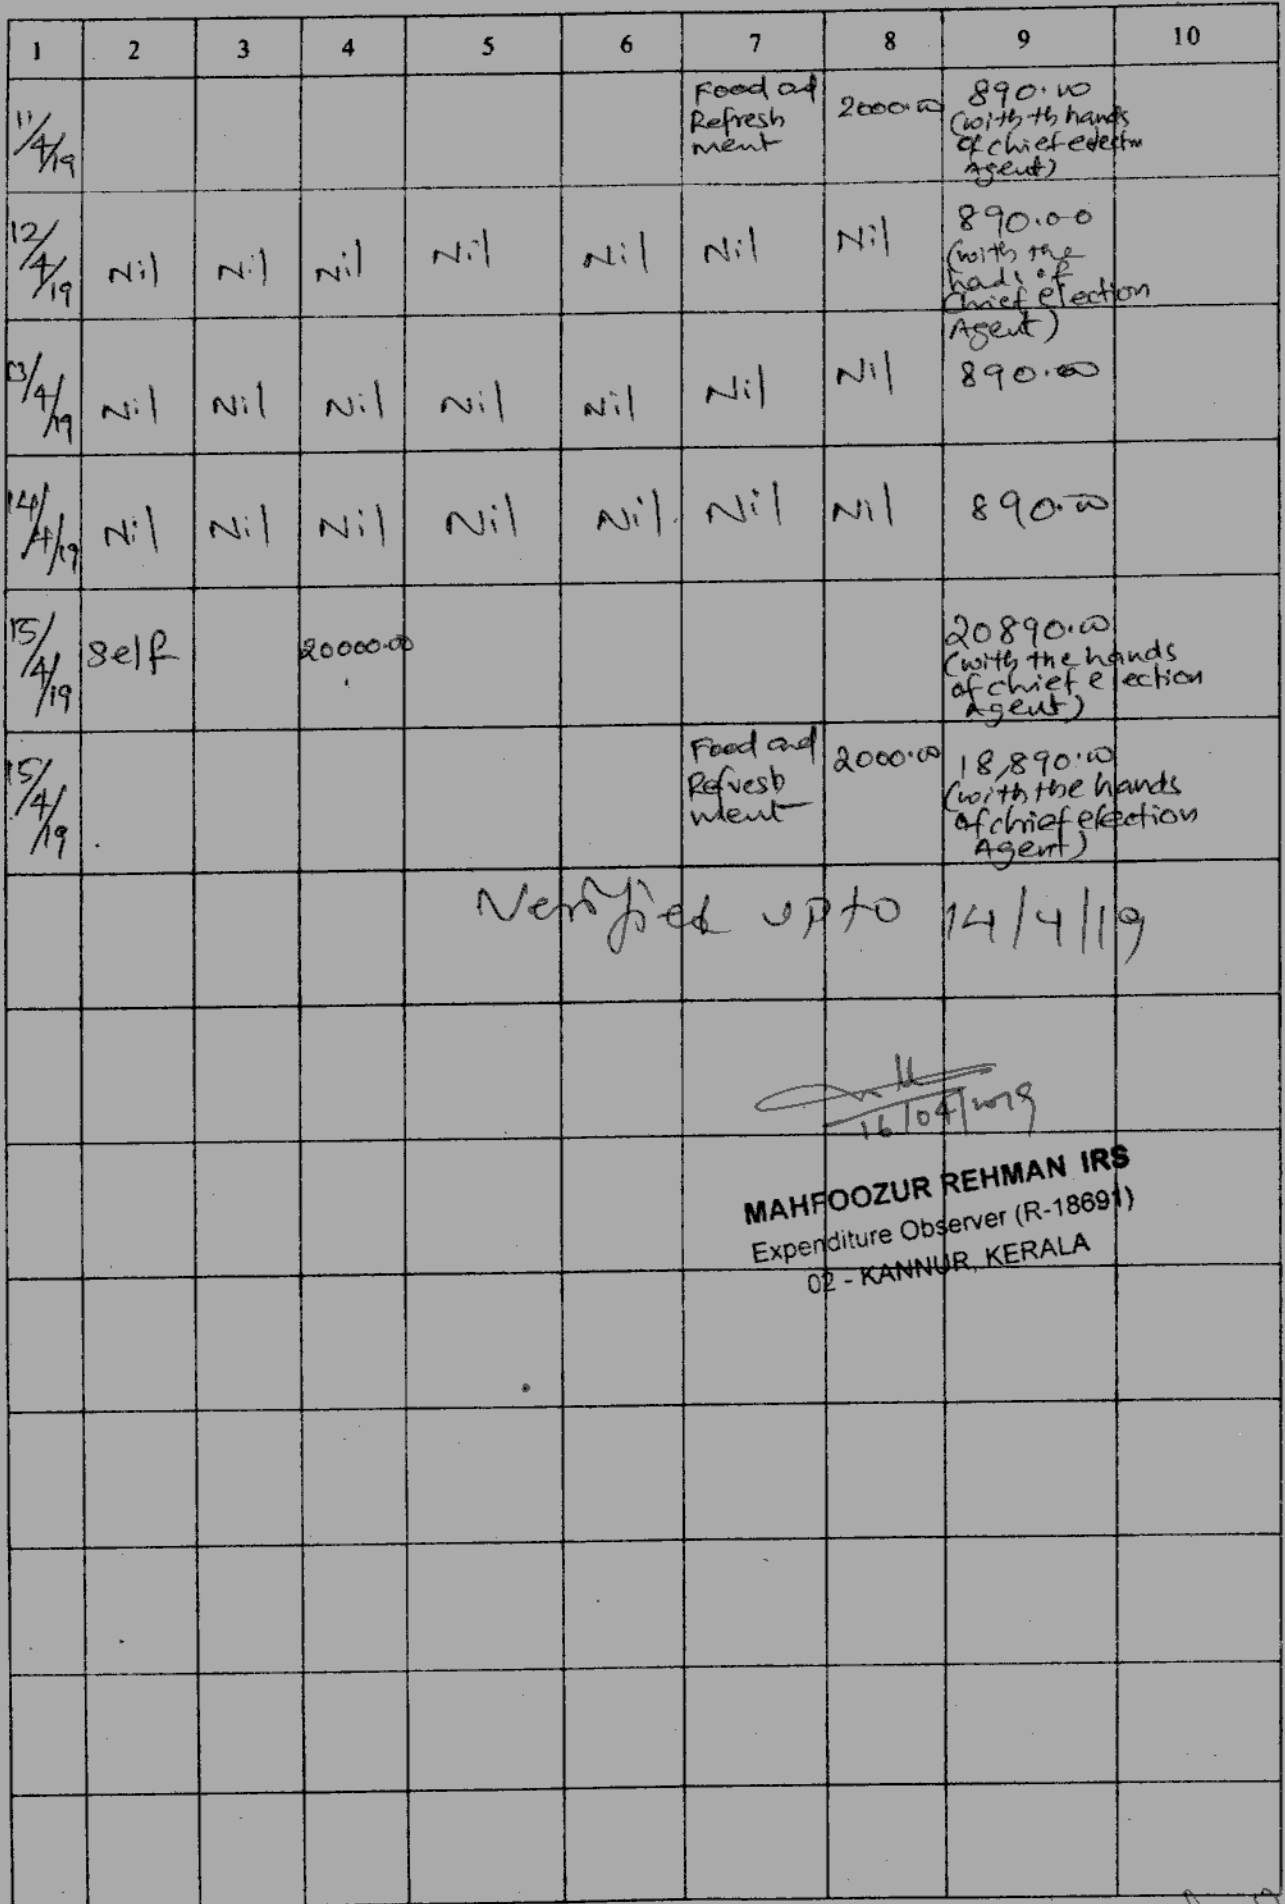 1 2 3 4 5 6 7 8 9 10
11/4/19 Food and 2000.00 890.00
Refresh (with th hands
ment of chief electn
Agent)
12/4/19 Nil Nil Nil Nil Nil Nil Nil 890.00
(with the
hads of
Chief election
Agent)
13/4/19 Nil Nil Nil Nil Nil Nil Nil 890.00
14/4/19 Nil Nil Nil Nil Nil Nil Nil 890.00
15/4/19 Self 20000.00 20890.00
(with the hands
of chief election
Agent)
15/4/19 Food and 2000.00 18,890.00
Refresh (with the hands
ment of chief election
Agent)
Verified upto 14/4/19
16/04/2019
MAHFOOZUR REHMAN IRS
Expenditure Observer (R-18691)
02 - KANNUR, KERALA